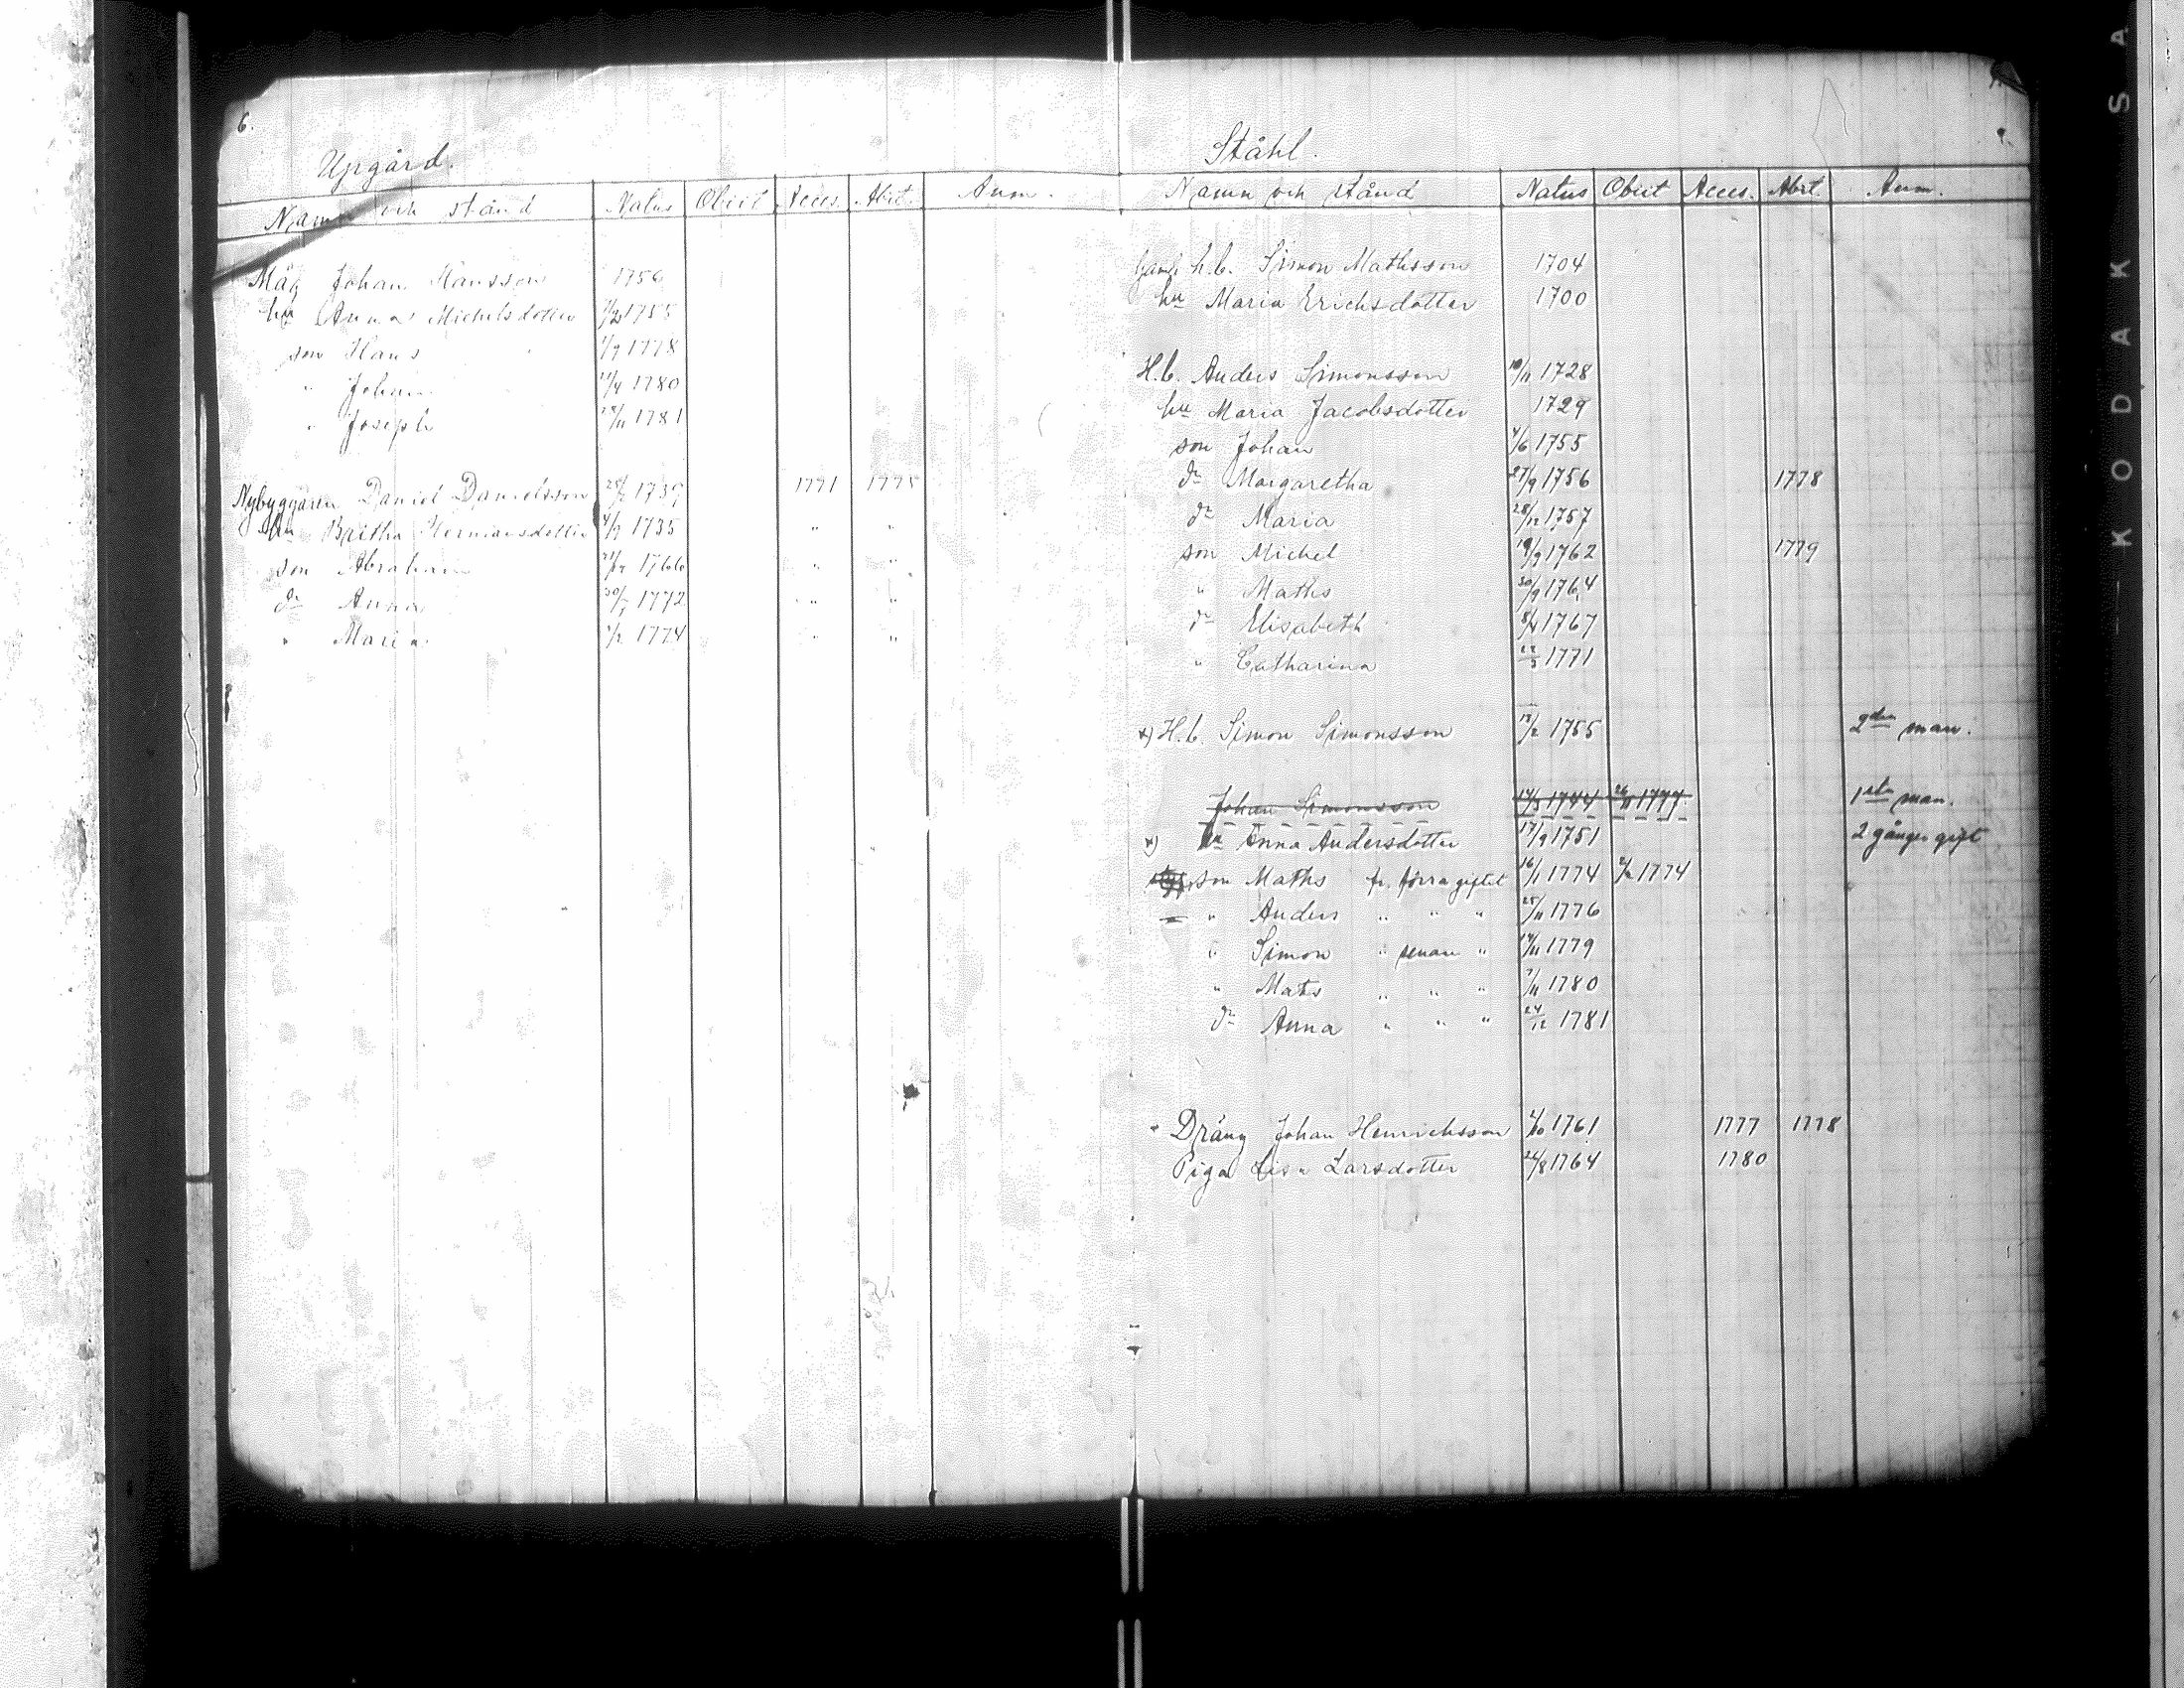 6.
Upgård.
Namn och stånd Natus Obiit Acces. Abit. Anm.
Måg Johan Hansson 1756
hu Anna Michelsdotter 1755
son Hans 1/9 1778
" Johan 1780
" Joseph 1781
Nybyggaren Daniel Danielsson 1771 1775
hu Britha Hermansdotter 4/9 1735 " "
son Abraham 1766 " "
dr Anna 1772 " "
" Maria 1774 " "
Ståhl.
Namn och stånd Natus Obiit Acces. Abit. Anm.
Gaml. h.b. Simon Mathsson 1704
hu Maria Erichsdotter 1700
H.b. Anders Simonsson 10/11 1728
hu Maria Jacobsdotter 1729
son Johan 4/6 1755
dr Margaretha 27/9 1756 1778
dr Maria 28/12 1757
son Michel 19/9 1762 1779
" Maths 30/9 1764
dr Elisabeth 1767
" Catharina 22/3 1771
x) H.b. Simon Simonsson 1755 2dra man.
Johan Simonsson 1744 26/11 1777. 1sta man.
x) hu Anna Andersdotter 17/9 1751 2 gånger gift
son Maths fr. förra giftet 16/1 1774 2/2 1774
" Anders " " " 25/11 1776
" Simon " senare " 14/11 1779
" Mats " " " 7/11 1780
dr Anna " " " 24/12 1781
Dräng Johan Henrichsson 1761 1777 1778
Piga Lisa Larsdotter 24/8 1764 1780
KODAK SA